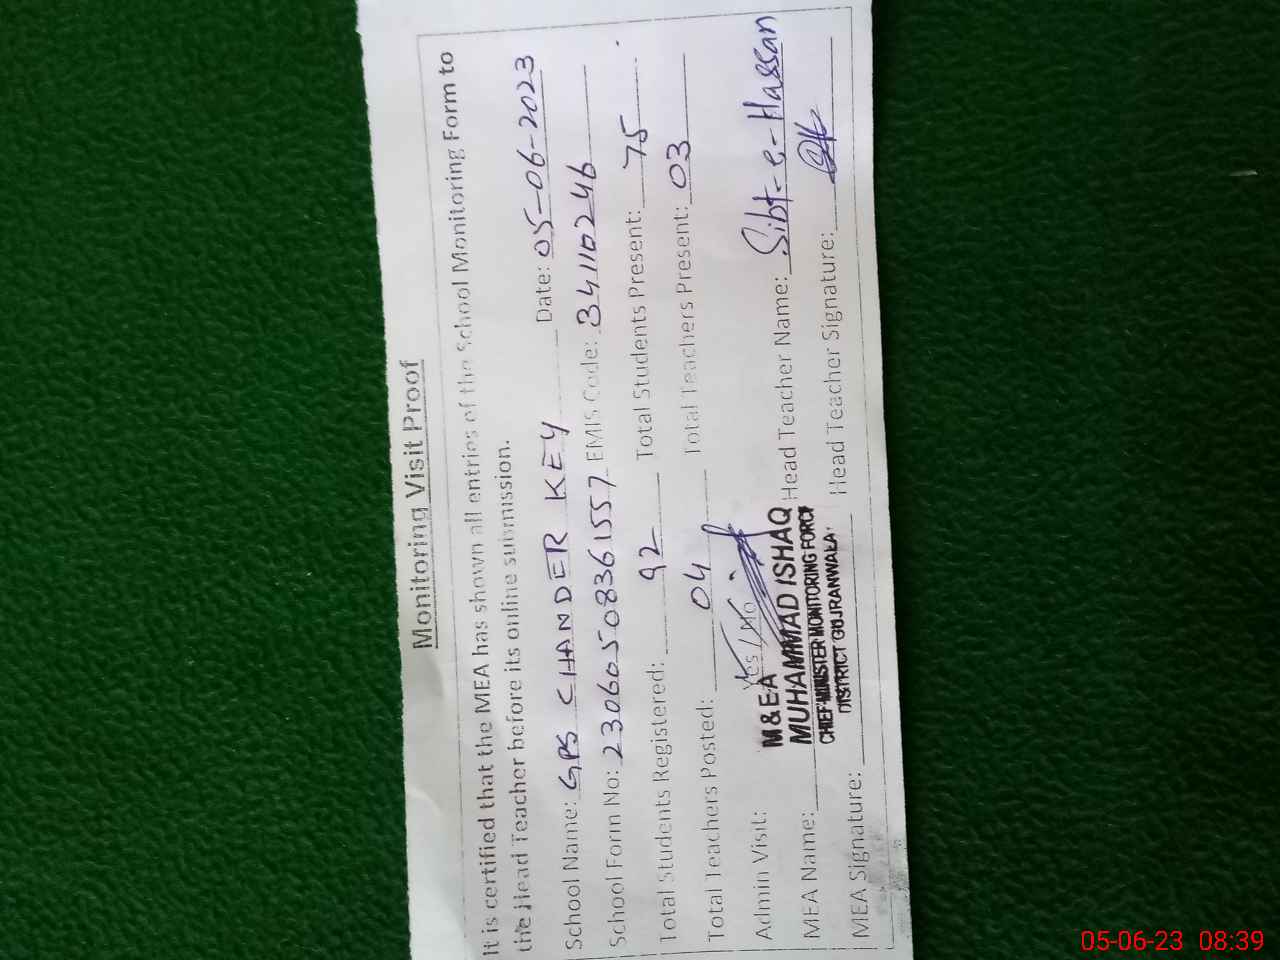 Monitoring Visit Proof
It is certified that the MEA has shown all entries of the School Monitoring Form to
the Head Teacher before its online submission.
School Name: GPS CHANDER KEY Date: 05-06-2023
School Form No: 23060508361557 EMIS Code: 34110246
Total Students Registered: 92 Total Students Present: 75
Total Teachers Posted: 04 Total Teachers Present: 03
Admin Visit: Yes / No
M & EA
MEA Name: MUHAMMAD ISHAQ Head Teacher Name: Sibt-e-Hassan
CHIEF MINISTER MONITORING FORCE
DISTRICT GUJRANWALA
MEA Signature: Head Teacher Signature:
05-06-23 08:39